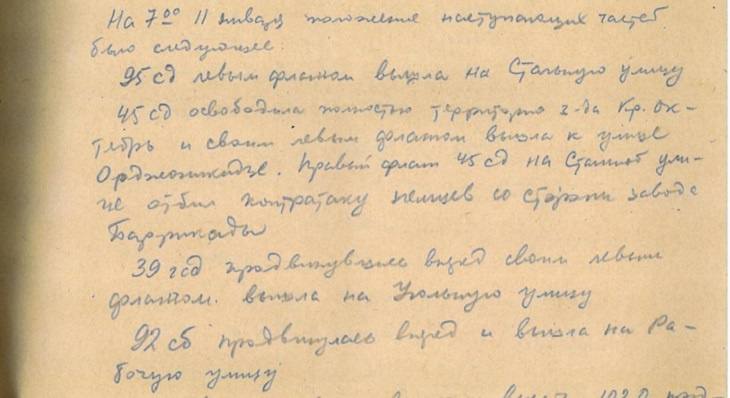 На 7⁰⁰ 11 января положение наступающих частей
было следующее:
95 сд левым флангом вышла на Стальную улицу
45 сд освободила полностью территорию з-да Кр. Ок-
тябрь и своим левым флангом вышла к улице
Орджоникидзе. Правый фланг 45 сд на Стальной ули-
це отбил контратаку немцев со стороны завода
Баррикады
39 гсд продвинувшись вперед своим левым
флангом. вышла на Угольную улицу
92 сб продвинулась вперед и вышла на Ра-
бочую улицу